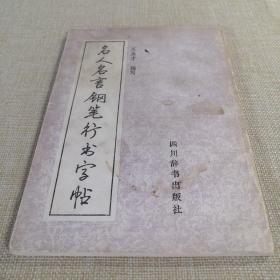 名人名言钢笔行书字帖
编写
四川辞书出版社